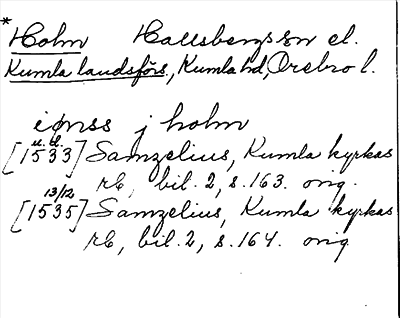 *
Holm Hallsbergs sn el.
Kumla landsförs., Kumla hd, Örebro l.
iønss j holm
u.d.
[1533] Samzelius, Kumla kyrkas
rb, bil. 2, s. 163. orig.
13/12
[1535] Samzelius, Kumla kyrkas
rb, bil. 2, s. 164. orig